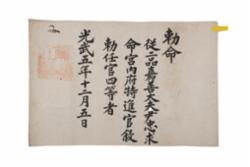 勅命
從二品嘉善大夫尹忠求
命宮內府特進官敍
勅任官四等者
光武五年十二月五日